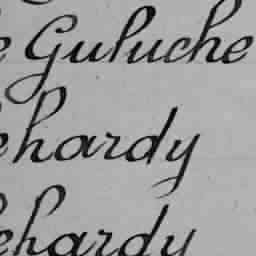 e Guluche
ehardy
ehardy